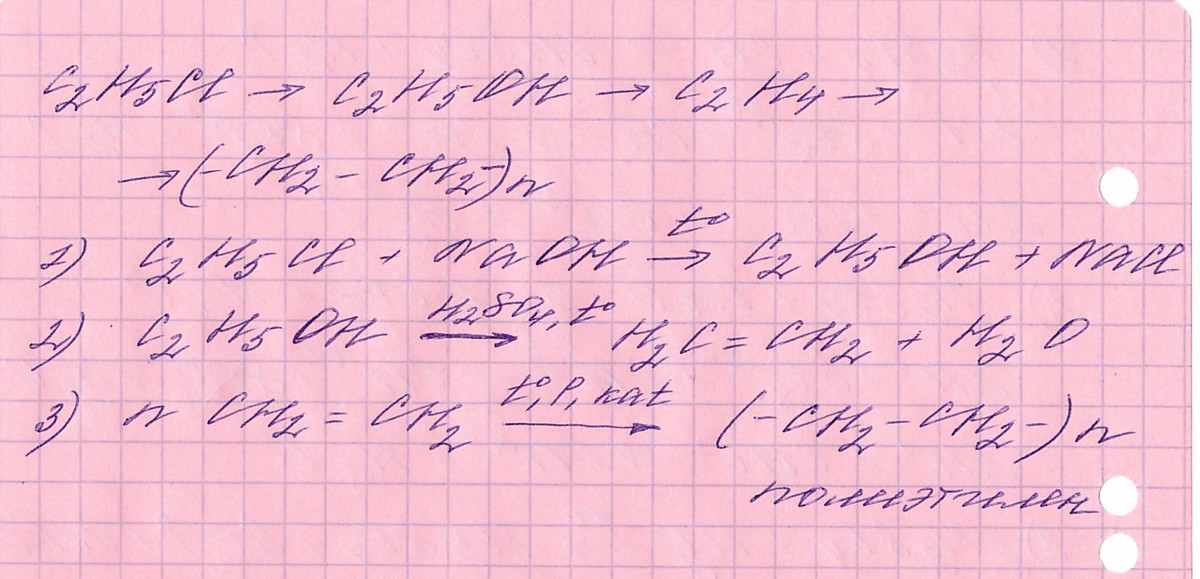 C₂H₅Cl → C₂H₅OH → C₂H₄ →
→ (-CH₂ - CH₂-)n
1) C₂H₅Cl + NaOH t° → C₂H₅OH + NaCl
2) C₂H₅OH H₂SO₄, t° → H₂C = CH₂ + H₂O
3) n CH₂ = CH₂ t°, P, kat → (-CH₂-CH₂-)n
полиэтилен